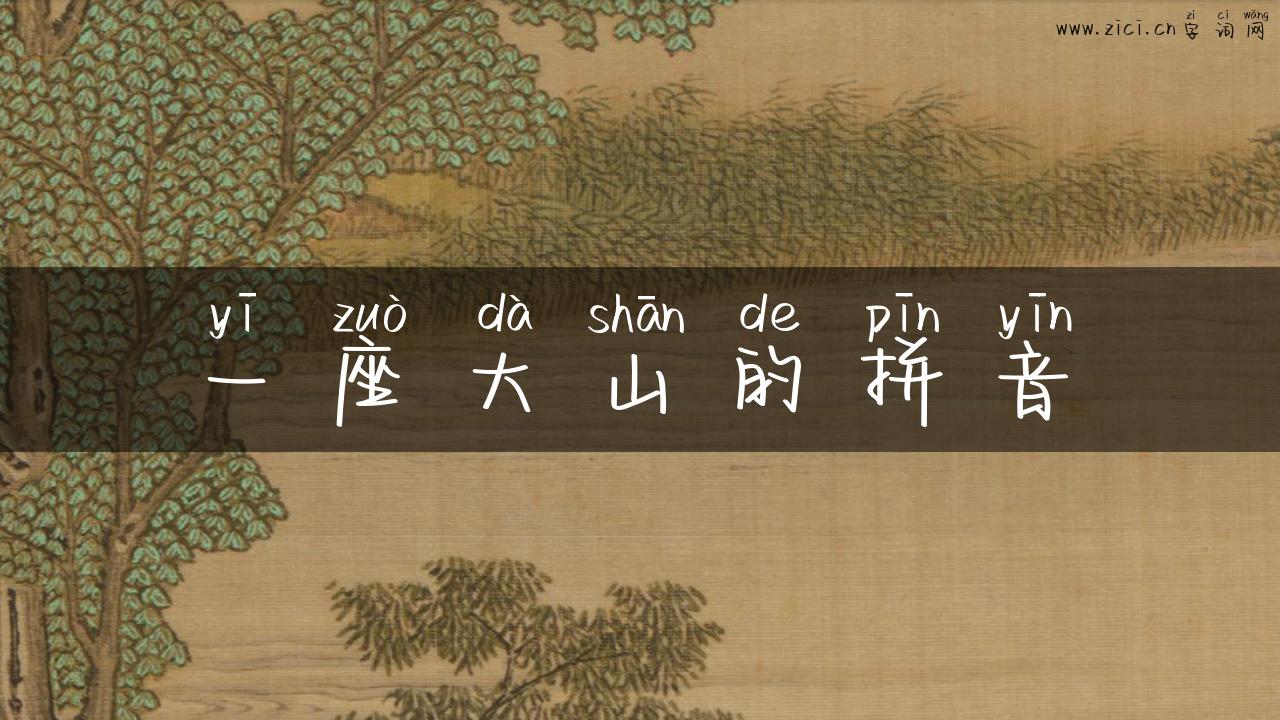 zì cí wǎng
www.zici.cn字词网
yī zuò dà shān de pīn yīn
一座大山的拼音